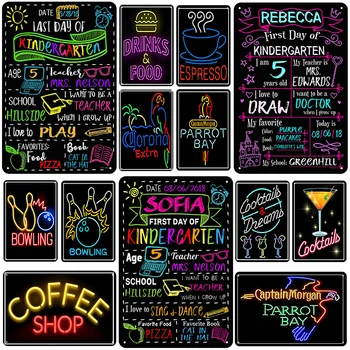 DATE 5/28/19
LAST DAY OF
KINDERGARTEN
Age 5 Teacher
MRS. NELSON
SCHOOL
HILLSIDE
I WANT TO BE A
TEACHER
WHEN I GROW UP
I love to PLAY
FAVORITES:
Food
PIZZA
Book
CAT IN
THE HAT
DRINKS
& FOOD
ESPRESSO
Corona
Extra
PARROT
BAY
REBECCA
First Day of
KINDERGARTEN
I am 5
years old
My Teacher is
MRS.
EDWARDS!
I love to
DRAW
I want be a
DOCTOR
when I grow up
My favorite
Color: PURPLE
Food: PANCAKES
Subject:
Today is
08/06/18
My School: GREENHILL
BOWLING
BOWLING
DATE 08/06/2018
SOFIA
FIRST DAY OF
KINDERGARTEN
Age 5 Teacher
Mrs. NELSON
SCHOOL
HILLSIDE
I WANT TO BE A
TEACHER
WHEN I GROW UP
I love to SING + DANCE
Favorite Food
PIZZA
Favorite Book
CAT IN THE HAT
Cocktails
& Dreams
Cocktails
COFFEE
SHOP
Captain Morgan
PARROT
BAY